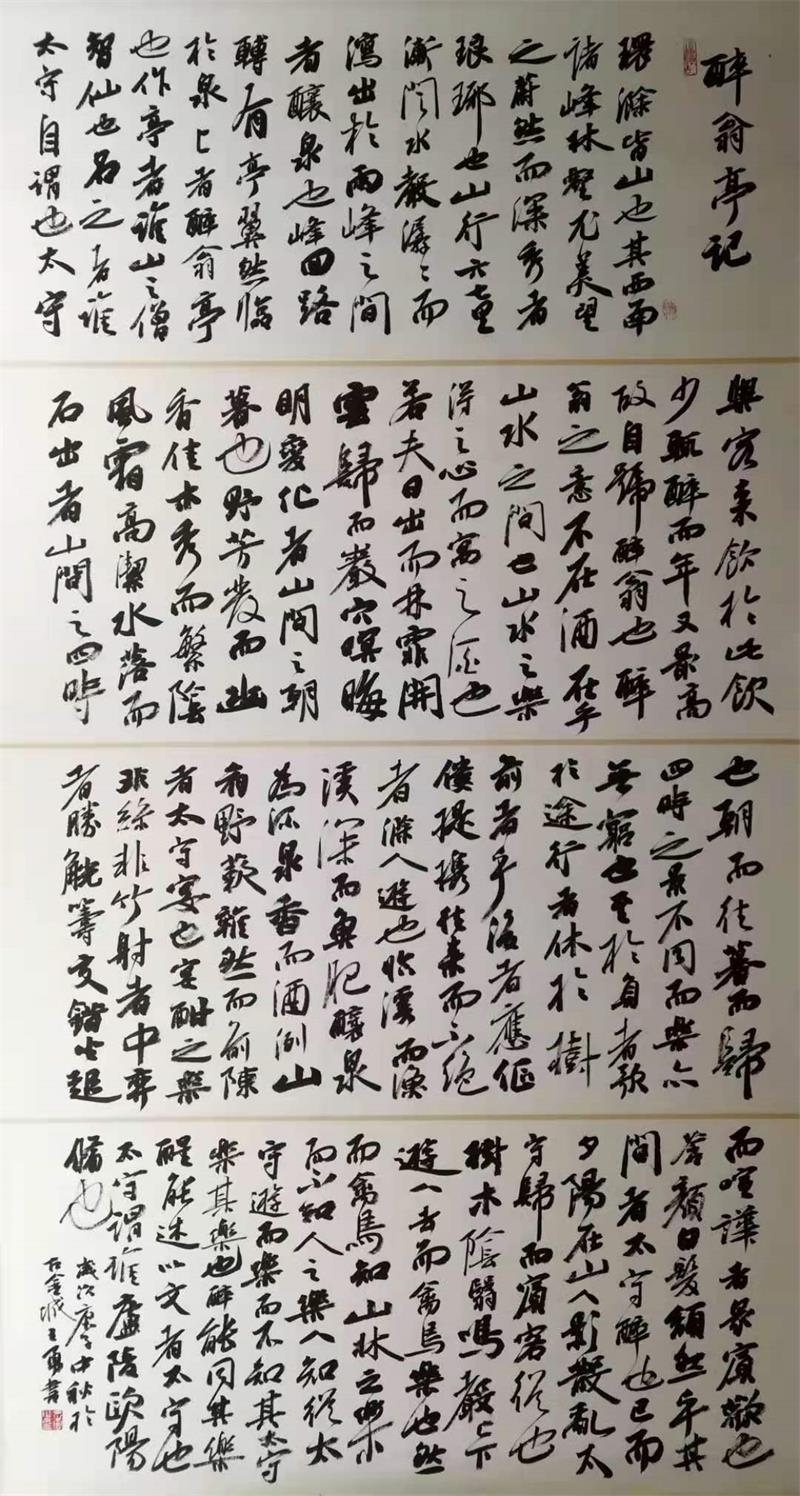 醉翁亭記
環滁皆山也其西南
諸峰林壑尤美望
之蔚然而深秀者
琅琊也山行六七里
漸聞水聲潺〻而
瀉出於兩峰之間
者釀泉也峰回路
轉有亭翼然臨
於泉上者醉翁亭
也作亭者誰山之僧
智仙也名之者誰
太守自謂也太守
與客來飲於此飲
少輒醉而年又最高
故自號醉翁也醉
翁之意不在酒在乎
山水之間也山水之樂
得之心而寓之酒也
若夫日出而林霏開
雲歸而巖穴暝晦
明變化者山間之朝
暮也野芳發而幽
香佳木秀而繁陰
風霜高潔水落而
石出者山間之四時
也朝而往暮而歸
四時之景不同而樂亦
無窮也至於負者歌
於途行者休於樹
前者乎後者應傴
僂提攜往來而不絕
者滁人遊也臨溪而漁
溪深而魚肥釀泉
為酒泉香而酒洌山
肴野蔌雜然而前陳
者太守宴也宴酣之樂
非絲非竹射者中弈
者勝觥籌交錯坐起
而喧譁者眾賓歡也
蒼顏白髮頹然乎其
間者太守醉也已而
夕陽在山人影散亂太
守歸而賓客從也
樹木陰翳鳴聲上下
遊人去而禽鳥樂也然
而禽鳥知山林之樂
而不知人之樂人知從太
守遊而樂而不知其太守
樂其樂也醉能同其樂
醒能述以文者太守也
太守謂誰廬陵歐陽
脩也
歲次庚子中秋於
古金城王勇書